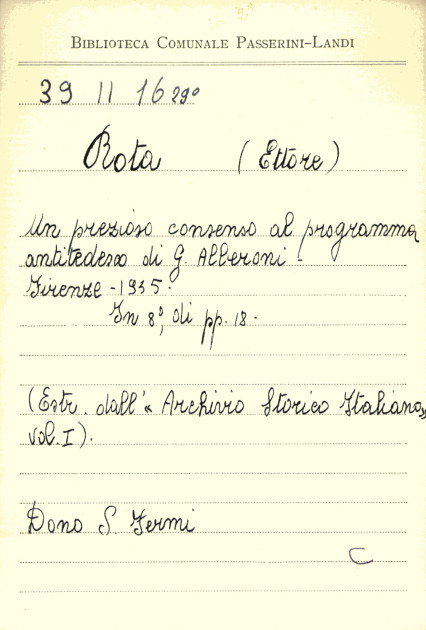 BIBLIOTECA COMUNALE PASSERINI-LANDI
39 II 16 29°
Rota (Ettore)
Un prezioso consenso al programma
antitedesco di G. Alberoni -
Firenze - 1935.
In 8°, di pp. 18.
(Estr. dall'« Archivio Storico Italiano»,
vol. I).
Dono S. Fermi
C